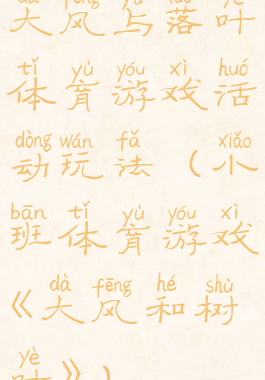 dà fēng yǔ luò yè
大风与落叶
tǐ yù yóu xì huó
体育游戏活
dòng wán fǎ xiǎo
动玩法（小
bān tǐ yù yóu xì
班体育游戏
dà fēng hé shù
《大风和树
yè
叶》）